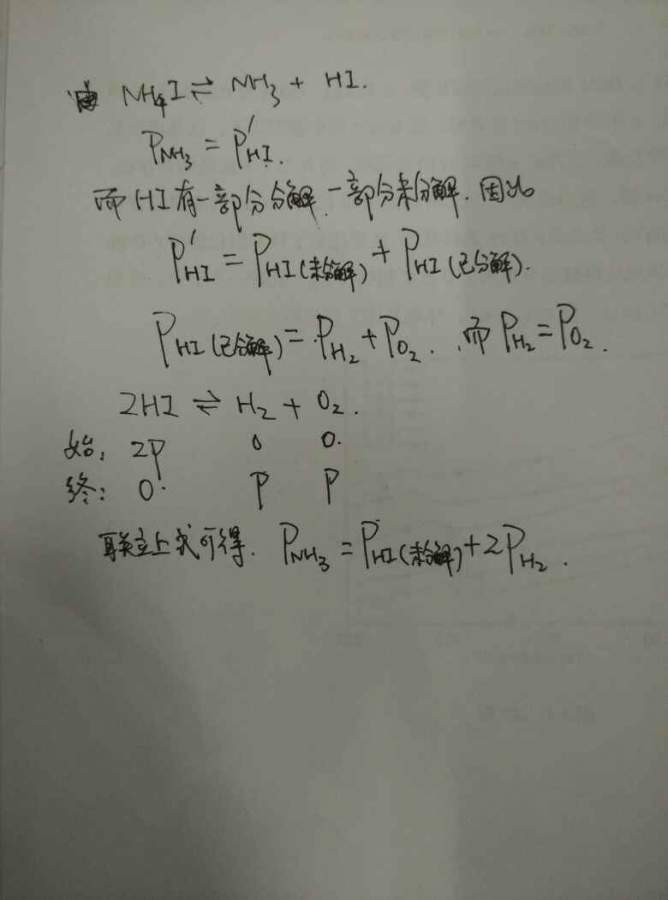 由 NH₄I ⇌ NH₃ + HI.
P_NH₃ = P'_HI.
而HI有一部分分解.一部分未分解.因此
P'_HI = P_HI(未分解) + P_HI(已分解).
P_HI(已分解) = P_H₂ + P_O₂. 而 P_H₂ = P_O₂.
2HI ⇌ H₂ + O₂.
始: 2P 0 0.
终: 0 P P
联立上式可得. P_NH₃ = P_HI(未分解) + 2P_H₂.